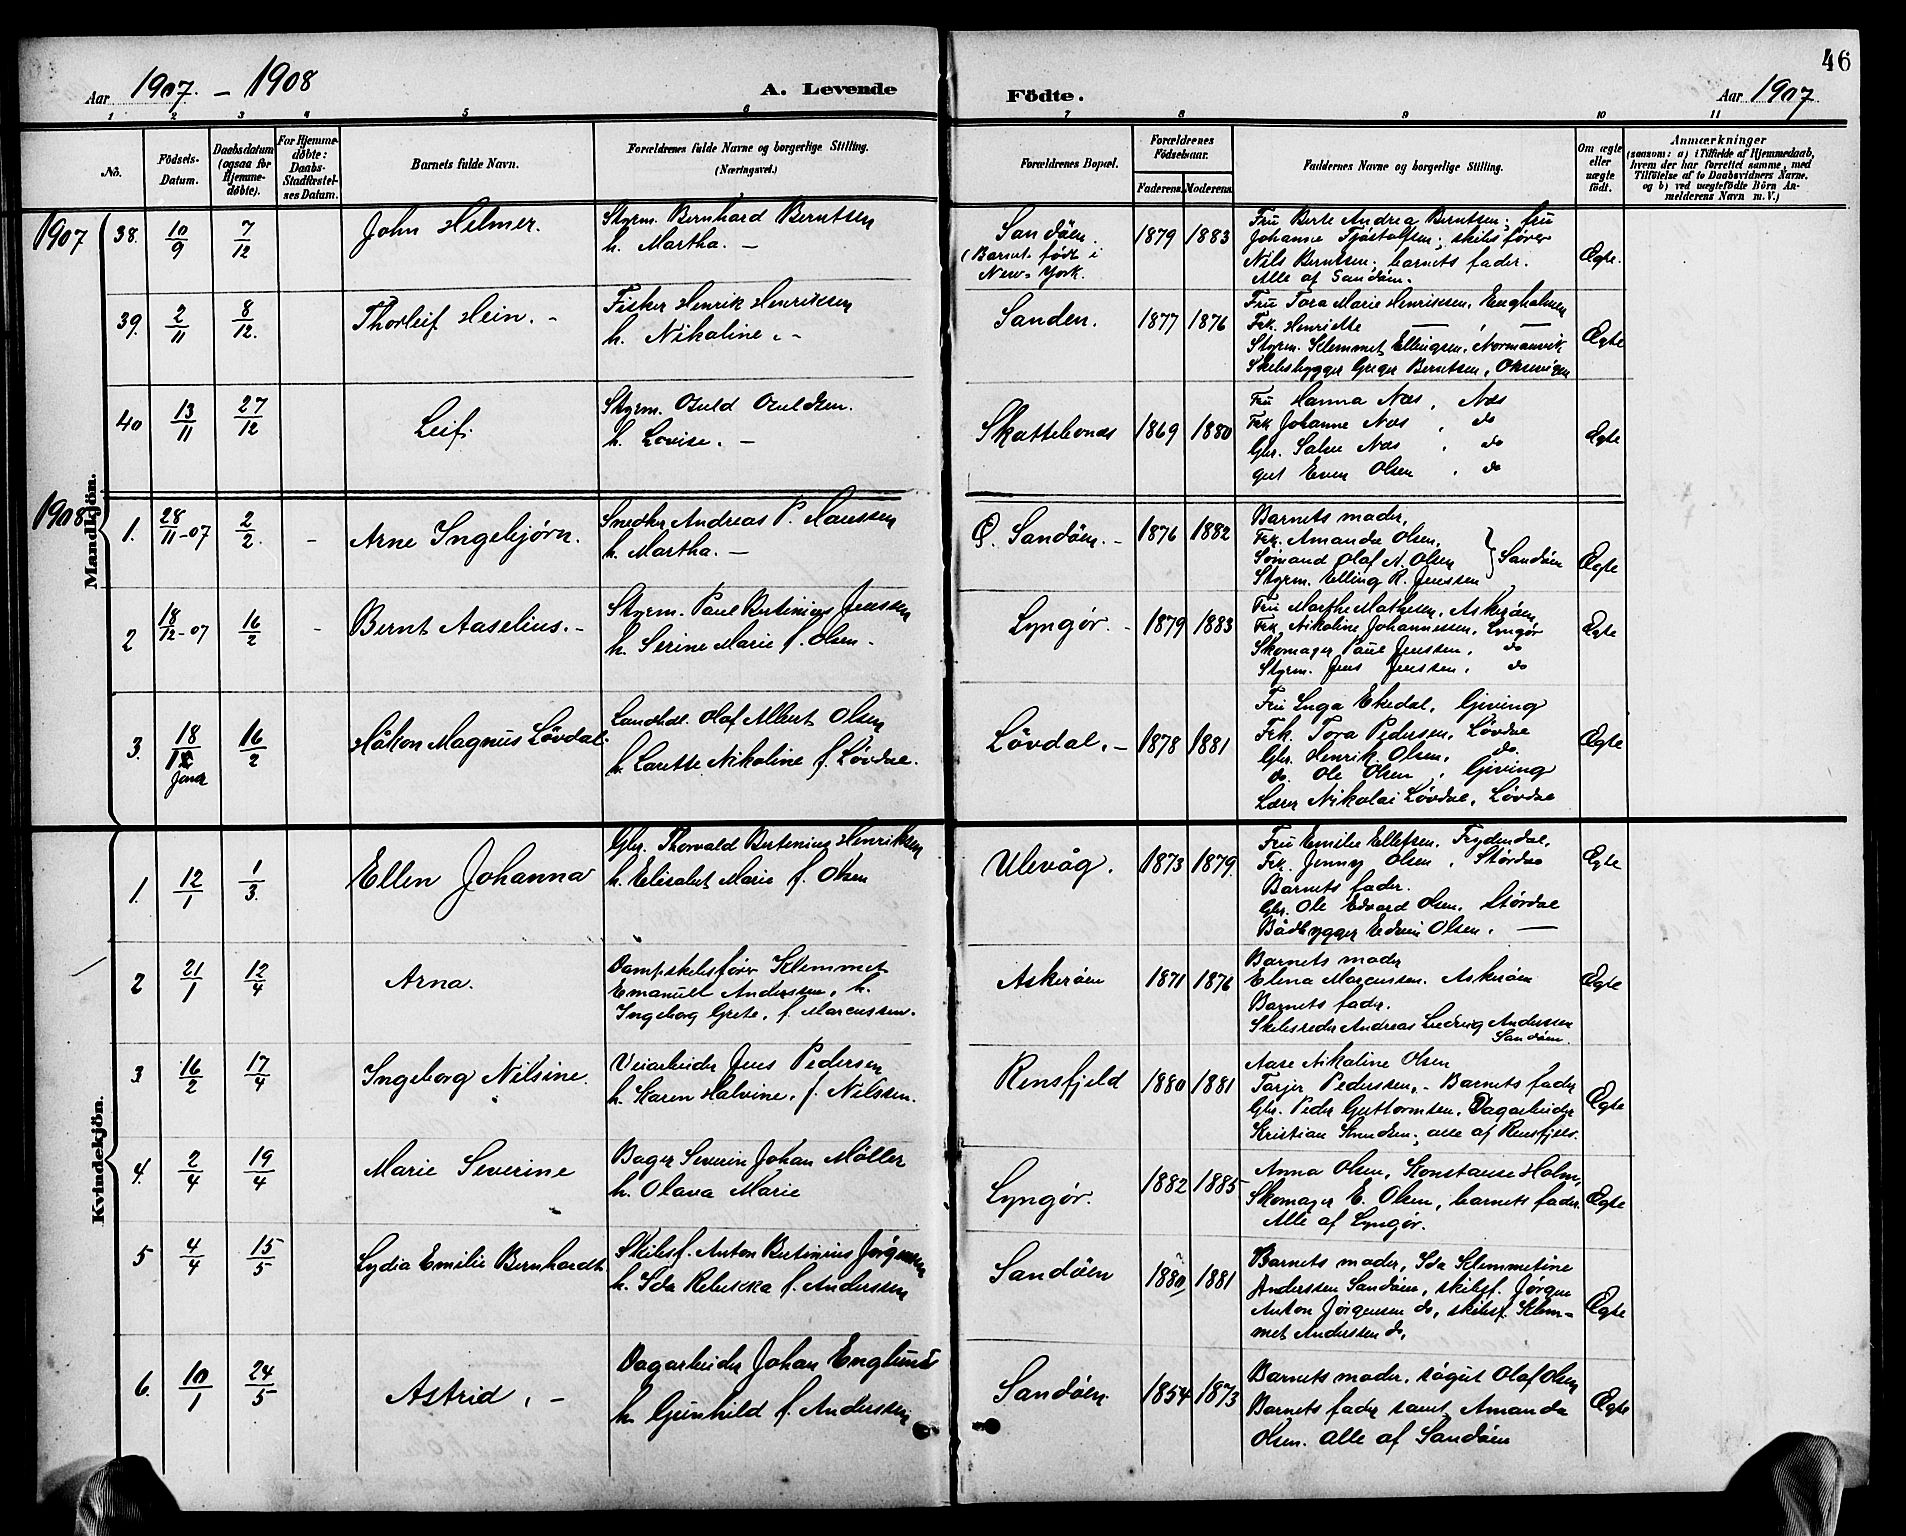 46
Aar 1907. – 1908
A. Levende
Födte.
Aar 1907.
1 2 3 4 5 6 7 8 9 10 11
No.
Födsels-Datum.
Daabsdatum (ogsaa for Hjemme-döbte).
For Hjemme-döbte: Daabs-Stadfæstel-ses Datum.
Barnets fulde Navn.
Forældrenes fulde Navne og borgerlige Stilling. (Næringsvei.)
Forældrenes Bopæl.
Forældrenes Födselsaar.
Faderens. Moderens.
Faddernes Navne og borgerlige Stilling.
Om ægte eller uægte födt.
Anmærkninger
(saasom: a) i Tilfælde af Hjemmedaab,
hvem der har forrettet samme, med
Tilföielse af to Daabsvidners Navne,
og b) ved uægtefödte Börn An-
melderens Navn m. V.)
Mandkjön.
1907
38. 10/9 7/12 John Helmer.
Styrm. Bernhard Berntsen
h. Martha. –
Sandöen.
(Barnet født i
New-York.
1879 1883
Fru Berte Andrea Berntsen; fru
Johanne Tjöstolfsen; skibsfører
Nils Berntsen; barnets fader.
Alle af Sandöen.
Ægte.
39. 2/11 8/12. Thorleif Hein. –
Fisker Henrik Henriksen
h. Nikoline. –
Sanden.
1877 1876
Fru Tora Marie Henriksen, Engholmen
Frk. Henriette — , —
Styrm. Klemmet Ellingsen, Normannvik
Skibsbygger Greger Berntsen,
Ægte
40 13/11 27/12 Leif.
Styrm. Osuld Osuldsen.
h. Lovise. –
Skottebonæs
1869 1880
Fru Hanna Næs, Næs
Frk Johanne Næs , do
Gbr. Salve Næs , do
gut Even Olsen , do
Ægte
1908
1. 28/11-07 2/2. – Arne Ingebjørn.
Snedker Andreas P. Hanssen
h. Martha. –
Ø. Sandöen. –
1876 1882
Barnets moder,
Frk. Amanda Olsen,
Sømand Olaf N. Olsen
Styrm. Elling R. Jenssen
} Sandöen
Ægte
2 18/12-07 16/2 – Bernt Aaselius. –
Styrm. Paul Bertinius Jenssen
h. Serine Marie f. Olsen –
Lyngør. –
1879 1883
Fru Marthe Mathisen, Askerøen,
Frk. Nikoline Johannessen, Lyngör
Skomager Paul Jenssen, do
Styrm. Jens Jenssen, do
Ægte
3. 18/1 Januar 16/2 Håkon Magnus Lövdal.
Landhdl. Olaf Albert Olsen
h. Laratte Nikoline f. Lövdal.
Lövdal. –
1878 1881
Fru Inga Ekedal, Gjving
Frk. Tora Pedersen, Lövdal
Gbr. Henrik Olsen, do.
do. Ole Olsen , Gjving
Lærer Nikolai Lövdal, Lövdal
Ægte
Kvindekjön.
1. 12/1 1/3. Ellen Johanna
Gbr. Thorvald Bertinius Henriksen
h. Elisabet Marie f. Olsen
Ulevåg.
1873 1879.
Fru Emilie Ellefsen, Frydendal,
Frk. Jenny Olsen , Stördal
Barnets fader.
Gbr. Ole Edvard Olsen. Stördal
Bådbygger Edvin Olsen. —
Ægte
2 21/1 12/4 Arna.
Dampskibsförer Klemmet
Emanuel Anderssen, h.
Ingeborg Grete, f. Marcussen.
Askeröen
1871 1876
Barnets moder
Elena Marcussen. Askeröen
Barnets fader.
Skibsreder Andreas Ludvig Andersen
Sandöen.
Ægte
3 16/2 17/4 Ingeborg Nilsine.
Veiarbeider Jens Pedersen
h. Karen Halvine, f. Nilssen.
Rensfjeld
1880 1881
Aase Nikoline Olsen
Tarjer Pederssen, – Barnets fader
Gbr. Peder Guttormsen, Dagarbeider
Kristian Knudsen; alle af Rensfjeld.
Ægte
4. 2/4 19/4 Marie Severine
Bager Severin Johan Möller
h. Olava Marie
Lyngør.
1882 1885
Anna Olsen, Konstanse Holm,
Skomager E. Olsen, barnets fader.
Alle af Lyngør.
Ægte
5 4/4 15/5 Lydia Emilie Bernhardt
Skibsf. Anton Bertinius Jörgensen
h. Ida Rebekka f. Anderssen
Sandöen
1880 1881
Barnets moder, Ida Klemmetine
Anderssen Sandöen, skibsf. Jørgen
Anton Jørgensen do, skibsf. Klem-
met Anderssen do.
Ægte
6. 10/1 24/5 Astrid. –
Dagarbeider Johan Englund
h. Gunhild f. Anderssen
Sandöen
1854 1873
Barnets moder, søgut Olaf Olsen
Barnets fader samt Amanda
Olsen. alle af Sandöen
Ægte